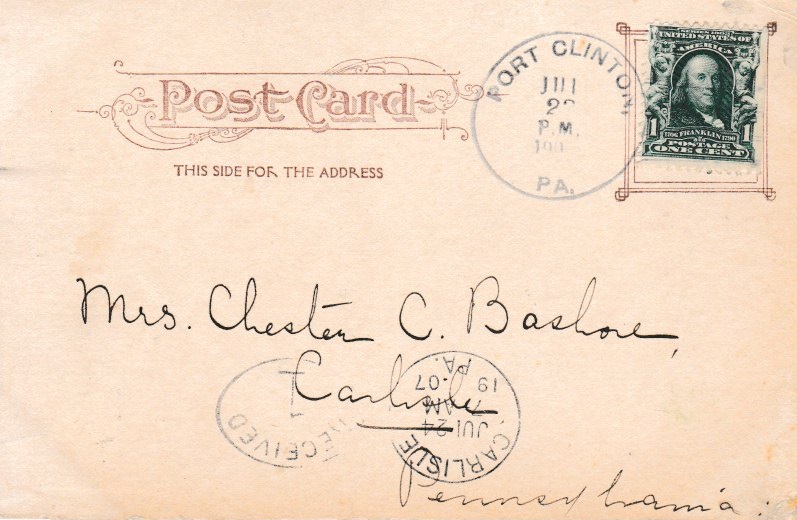 Post Card
THIS SIDE FOR THE ADDRESS
PORT CLINTON,
P.M.
PA.
SERIES 1902
UNITED STATES OF
AMERICA
1 1706 FRANKLIN 1790 1
POSTAGE
ONE CENT
Mrs. Chester C. Bashore,
Carlisle
Pennsylvania:
RECEIVED
CARLISLE
JUL 24
7 AM
19 07
PA.